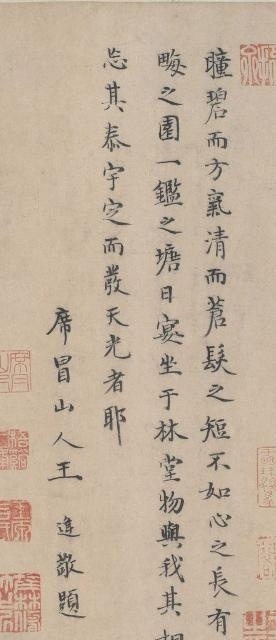 瞳碧而方氣清而蒼髮之短不如心之長有
畮之園一鑑之塘日宴坐于林堂物與我其相
忘其泰宇定而發天光者耶
席冒山人王逢敬題